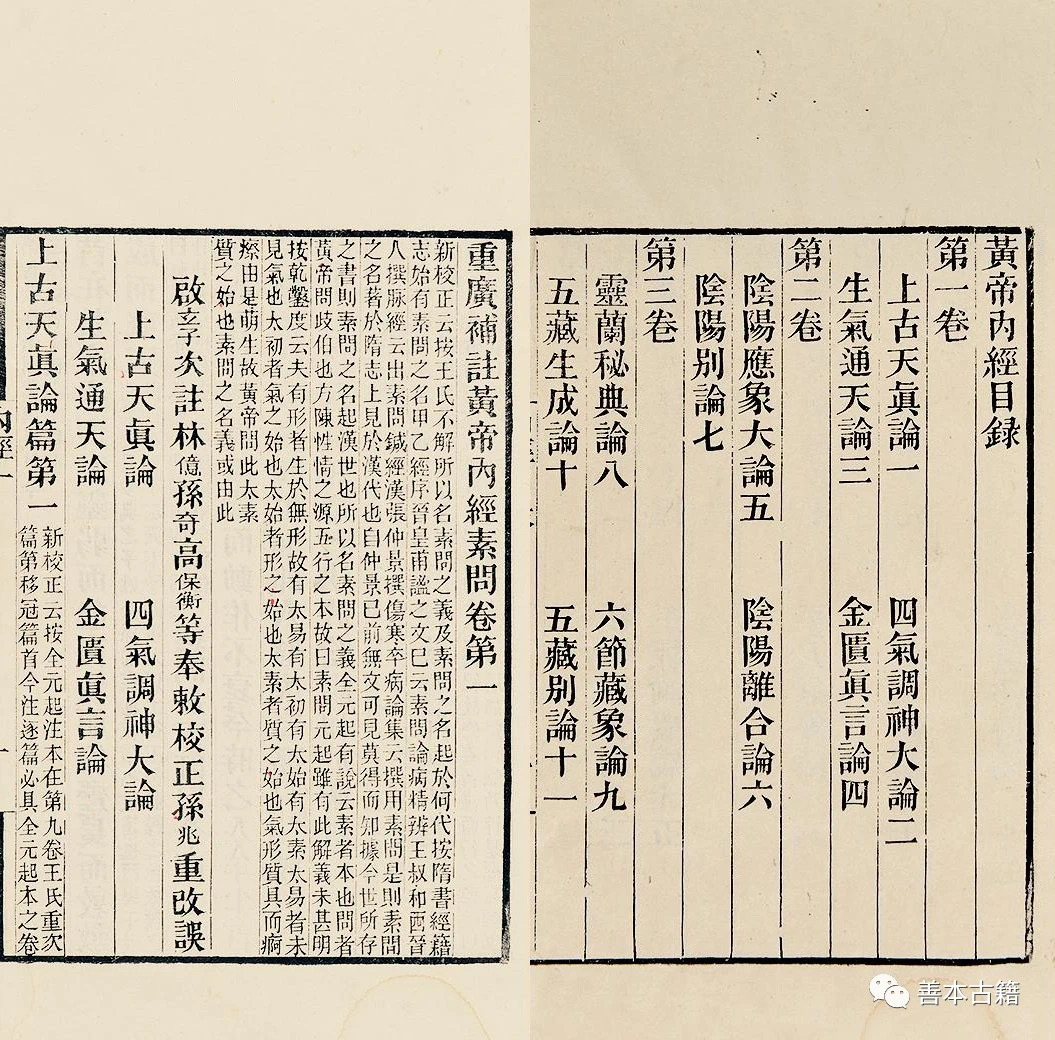 黃帝內經目録
第一卷
上古天眞論一 四氣調神大論二
生氣通天論三 金匱眞言論四
第二卷
陰陽應象大論五 陰陽離合論六
陰陽别論七
第三卷
靈蘭秘典論八 六節藏象論九
五藏生成論十 五藏别論十一
重廣補註黃帝內經素問卷第一
新校正云按王氏不解所以名素問之義及素問之名起於何代按隋書經籍
志始有素問之名甲乙經序晉皇甫謐之文已云素問論病精辨王叔和西晉
人撰脉經云出素問鍼經漢張仲景撰傷寒卒病論集云撰用素問是則素問
之名著於隋志上見於漢代也自仲景已前無文可見莫得而知據今世所存
之書則素問之名起漢世也所以名素問之義全元起有說云素者本也問者
黃帝問歧伯也方陳性情之源五行之本故曰素問元起雖有此解義未甚明
按乾鑿度云夫有形者生於無形故有太易有太初有太始有太素太易者未
見氣也太初者氣之始也太始者形之始也太素者質之始也氣形質具而痾
瘵由是萌生故黃帝問此太素
質之始也素問之名義或由此
啟玄子次註林億孫奇高保衡等奉敕校正孫兆重改誤
上古天眞論 四氣調神大論
生氣通天論 金匱眞言論
上古天眞論篇第一 新校正云按全元起注本在第九卷王氏重次
篇第移冠篇首今注逐篇必具全元起本之卷
內經一
善本古籍